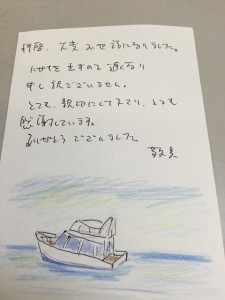 拝啓、大変お世話になりました。
ハガキを出すのを遅くなり
申し訳ございません。
とても、親切にして下さり、とても
感謝しています。
ありがとうございました。
敬具